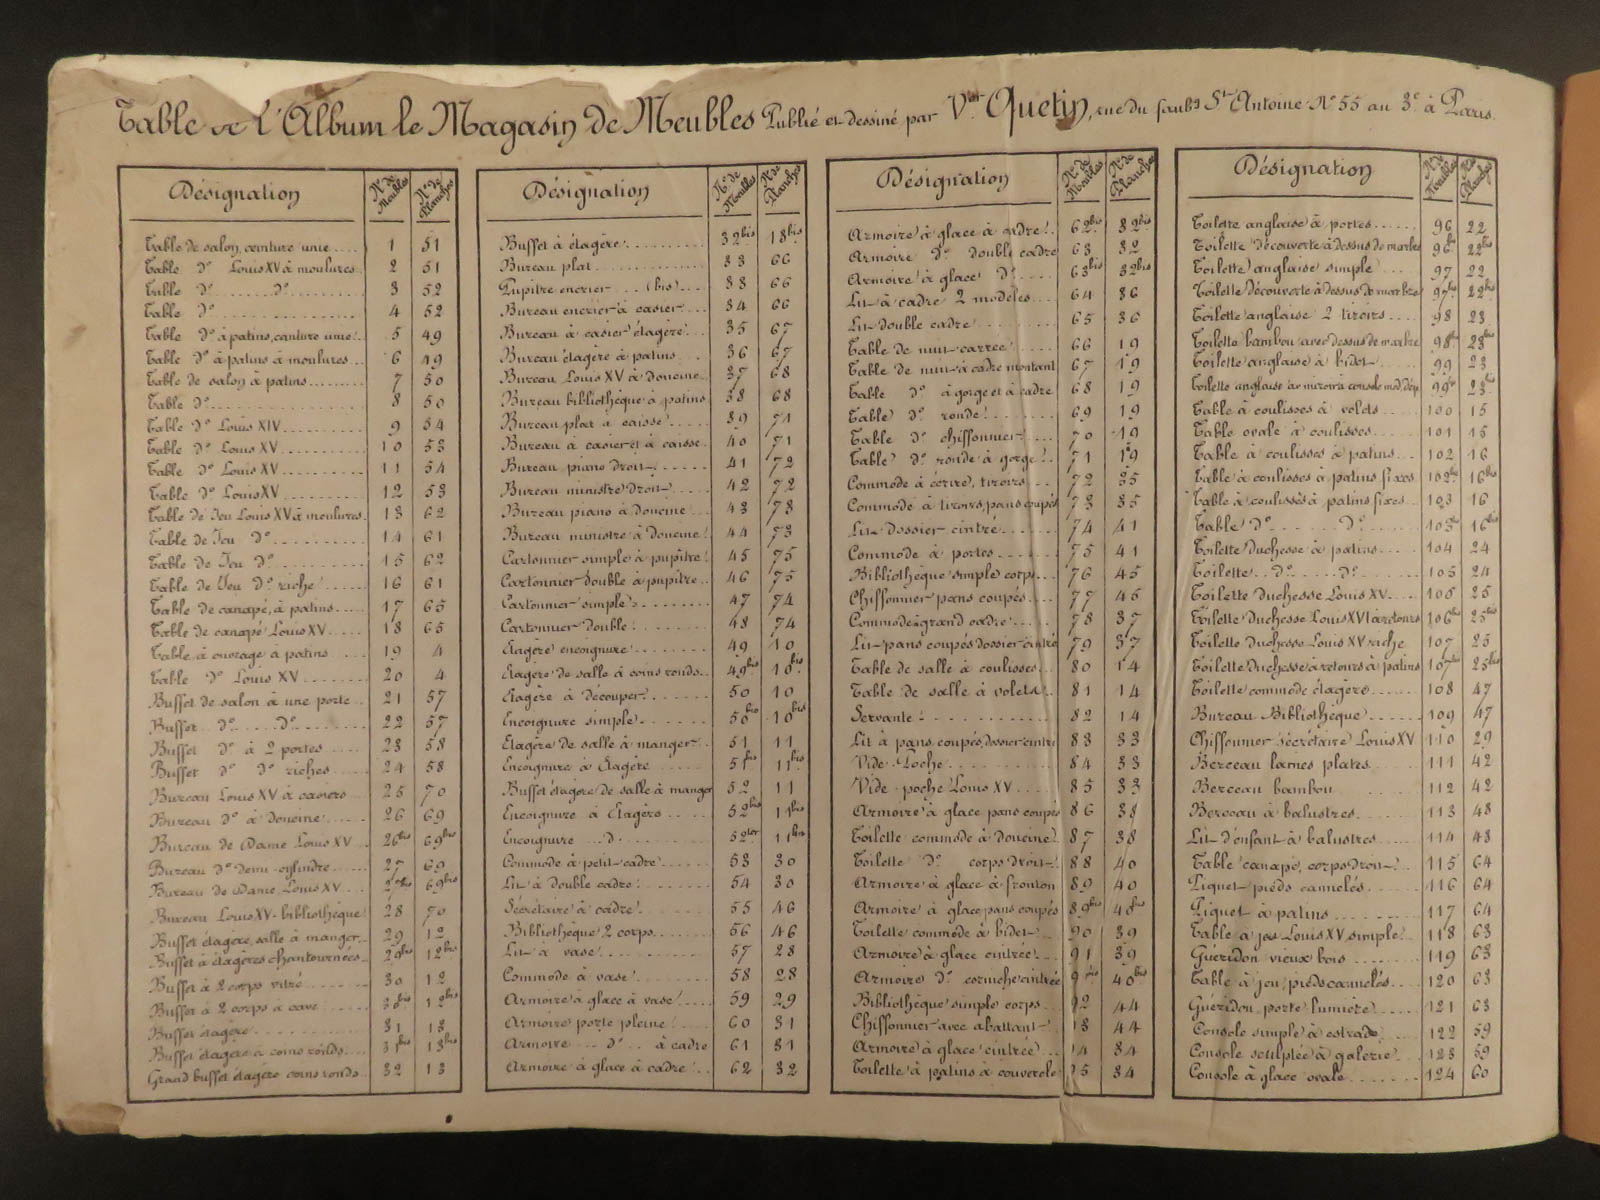 Table de l'Album le Magasin de Meubles Publié et dessiné par Vor Quetin, rue du faubg St Antoine No 55 au 3e à Paris.
Désignation No de Meubles No de Planches
Table de salon, ceinture unie.... 1 51
Table do Louis XV à moulures... 2 51
Table do ........ do ........ 3 52
Table do ........ 4 52
Table do à patins, ceinture unie. 5 49
Table do à patins à moulures... 6 49
Table de salon à patins....... 7 50
Table do ........ 8 50
Table do Louis XIV........ 9 54
Table do Louis XV........ 10 53
Table do Louis XV........ 11 54
Table do Louis XV........ 12 53
Table de Jeu Louis XV à moulures. 13 62
Table de Jeu do ........ 14 61
Table de Jeu do ........ 15 62
Table de Jeu do riche...... 16 61
Table de canapé, à patins..... 17 65
Table de canapé Louis XV..... 18 65
Table à ouvrage à patins..... 19 4
Table do Louis XV........ 20 4
Buffet de salon à une porte... 21 57
Buffet do .... do .... 22 57
Buffet do à 2 portes..... 23 58
Buffet do do riches..... 24 58
Bureau Louis XV à casiers.... 25 70
Bureau do à doucine..... 26 69
Bureau de Dame Louis XV... 26bis 69bis
Bureau do demi-cylindre.... 27 69
Bureau de Dame Louis XV... 27bis 69bis
Bureau Louis XV-bibliothèque 28 70
Buffet étagère, salle à manger.. 29 12
Buffet à étagères chantournées.. 29bis 12bis
Buffet à 2 corps vitré...... 30 12
Buffet à 2 corps à cave.... 30bis 12bis
Buffet étagère........ 31 13
Buffet étagère à coins ronds.... 31bis 13bis
Grand buffet étagère coins ronds... 32 13
Désignation No de Meubles No de Planches
Buffet à étagère........ 32bis 13bis
Bureau plat........ 33 66
Pupitre encrier.... (bis).... 33 66
Bureau encrier à casier.... 34 66
Bureau à casier étagère... 35 67
Bureau étagère à patins... 36 67
Bureau Louis XV à doucine.. 37 68
Bureau bibliothèque à patins 38 68
Bureau plat à caisse.... 39 71
Bureau à casier et à caisse. 40 71
Bureau piano droit..... 41 72
Bureau ministre droit.... 42 72
Bureau piano à doucine... 43 73
Bureau ministre à doucine. 44 73
Cartonnier simple à pupître. 45 75
Cartonnier double à pupître.. 46 75
Cartonnier simple........ 47 74
Cartonnier double........ 48 74
Étagère encoignure........ 49 10
Étagère de salle à coins ronds.. 49bis 10bis
Étagère à découper........ 50 10
Encoignure simple........ 50bis 10bis
Etagère de salle à manger.. 51 11
Encoignure à Étagère..... 51bis 11bis
Buffet étagère de salle à manger 52 11
Encoignure à Étagère..... 52bis 11bis
Encoignure ...d. ..... 52ter 11bis
Commode à petit-cadre.... 53 30
Lit à double cadre........ 54 30
Sécrétaire à cadre....... 55 46
Bibliothèque 2 corps...... 56 46
Lit à vase........ 57 28
Commode à vase....... 58 28
Armoire à glace à vase.... 59 29
Armoire porte pleine..... 60 31
Armoire ... do ... à cadre 61 31
Armoire à glace à cadre.... 62 32
Désignation No de Meubles No de Planches
Armoire à glace à cadre. 62bis 32bis
Armoire do double cadre 63 32
Armoire à glace do .... 63bis 32bis
Lit à cadre 2 modèles.... 64 36
Lit double cadre........ 65 36
Table de nuit carrée.... 66 19
Table de nuit à cadre montant 67 19
Table do à gorge et à cadre 68 19
Table do ronde........ 69 19
Table do chiffonnier.... 70 19
Table do ronde à gorge.. 71 19
Commode à écrire, tiroirs... 72 35
Commode à tiroirs, pans coupés 73 35
Lit dossier cintré....... 74 41
Commode à portes....... 75 41
Bibliothèque simple corps... 76 45
Chiffonnier pans coupés.... 77 45
Commode à grand cadre... 78 37
Lit pans coupés dossier cintré 79 37
Table de salle à coulisses... 80 14
Table de salle à volets... 81 14
Servante........ 82 14
Lit à pans coupés, dossier cintré 83 33
Vide-Poche........ 84 33
Vide-poche Louis XV..... 85 33
Armoire à glace pans coupés 86 38
Toilette commode à doucine. 87 38
Toilette do corps droit.. 88 40
Armoire à glace à fronton 89 40
Armoire à glace pans coupés 89bis 40bis
Toilette commode à bidet.. 90 39
Armoire à glace cintrée... 91 39
Armoire do corniche cintrée 91bis 40bis
Bibliothèque simple corps... 92 44
Chiffonnier avec abattant.. 93 44
Armoire à glace cintrée... 94 34
Toilette à patins à couvercle 95 34
Désignation No de Meubles No de Planches
Toilette anglaise à portes..... 96 22
Toilette découverte à dessus de marbre 96bis 22bis
Toilette anglaise simple.... 97 22
Toilette découverte à dessus de marbre 97bis 22bis
Toilette anglaise 2 tiroirs.... 98 23
Toilette bambou avec dessus de marbre 98bis 23bis
Toilette anglaise à bidet.... 99 23
Toilette anglaise à miroir à console mod. dép. 99bis 23bis
Table à coulisses à volets.... 100 15
Table ovale à coulisses..... 101 15
Table à coulisses à patins... 102 16
Table à coulisses à patins fixes. 102bis 16bis
Table à coulisses à patins fixes.. 103 16
Table do ....... do ..... 103bis 16bis
Toilette duchesse à patins.... 104 24
Toilette.. do ...... do ... 105 24
Toilette duchesse Louis XV.... 106 25
Toilette duchesse Louis XVI à retours 106bis 25bis
Toilette duchesse Louis XV riche 107 25
Toilette duchesse à retours à patins 107bis 25bis
Toilette commode étagère..... 108 47
Bureau-Bibliothèque....... 109 47
Chiffonnier sécrétaire Louis XV 110 29
Berceau lames plates...... 111 42
Berceau bambou........ 112 42
Berceau à balustres....... 113 43
Lit d'enfant à balustres..... 114 43
Table canapé, corps droit.... 115 64
Piquet pieds cannelés...... 116 64
Piquet à patins........ 117 64
Table à jeu Louis XV simple.. 118 63
Guéridon vieux bois...... 119 63
Table à jeu, pieds cannelés... 120 63
Guéridon, porte lumière..... 121 63
Console simple à estrade..... 122 59
Console sculptée à galerie... 123 59
Console à glace ovale....... 124 60